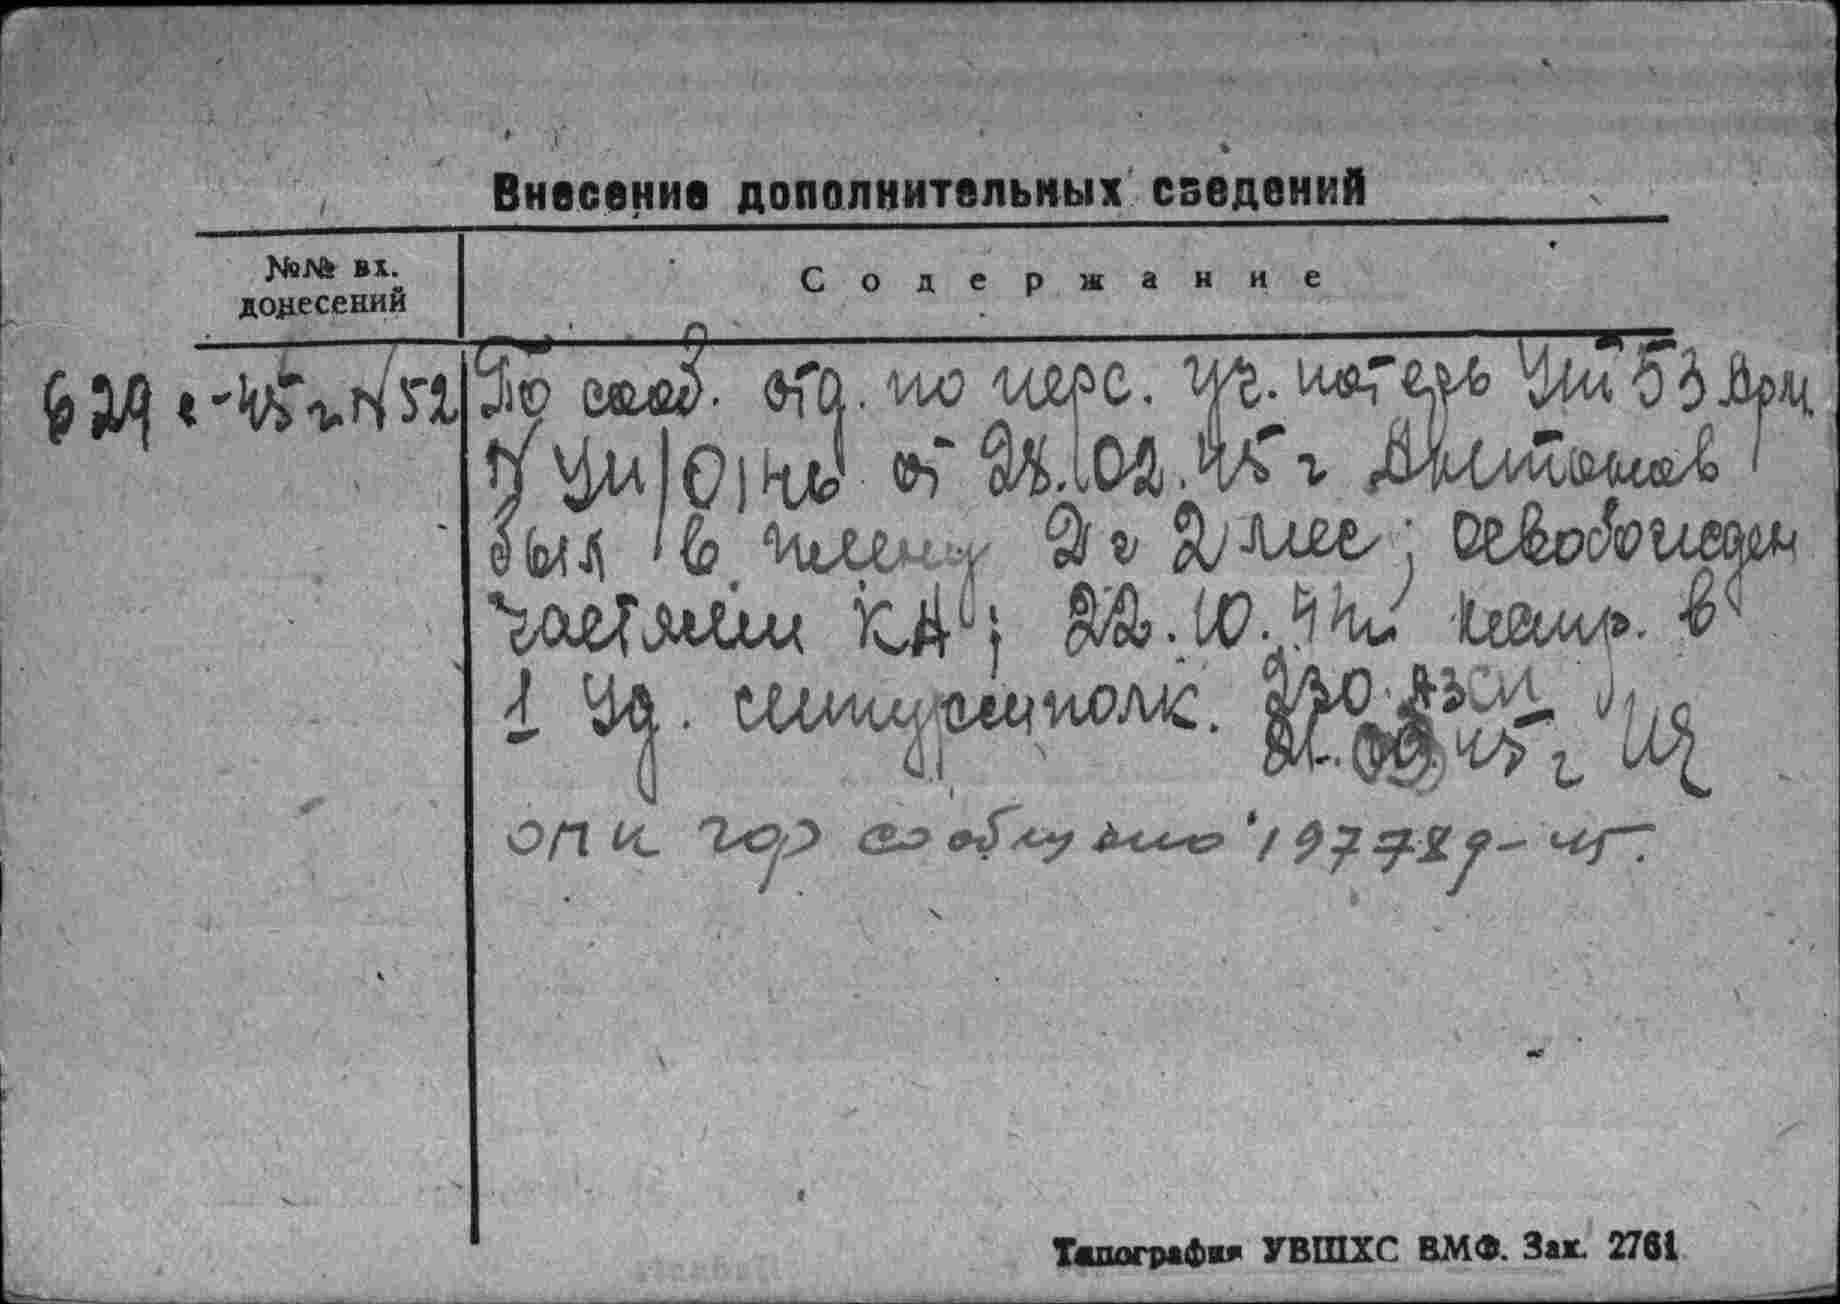 Внесение дополнительных сведений
№№ вх.
донесений
Содержание
629 с-45 г. N 52
По сооб. отд. по перс. уч. потерь Ушт 53 Арм.
N УШ/0146 от 28.02.45 г Антонов
был в плену 2 г 2 мес; освобожден
частями КА; 22.10.44 г напр. в
1 Уд. штурмполк. 230 АЗСП
45 г
сообщено 197789-45.
Типография УВШХС ВМФ. Зак. 2761